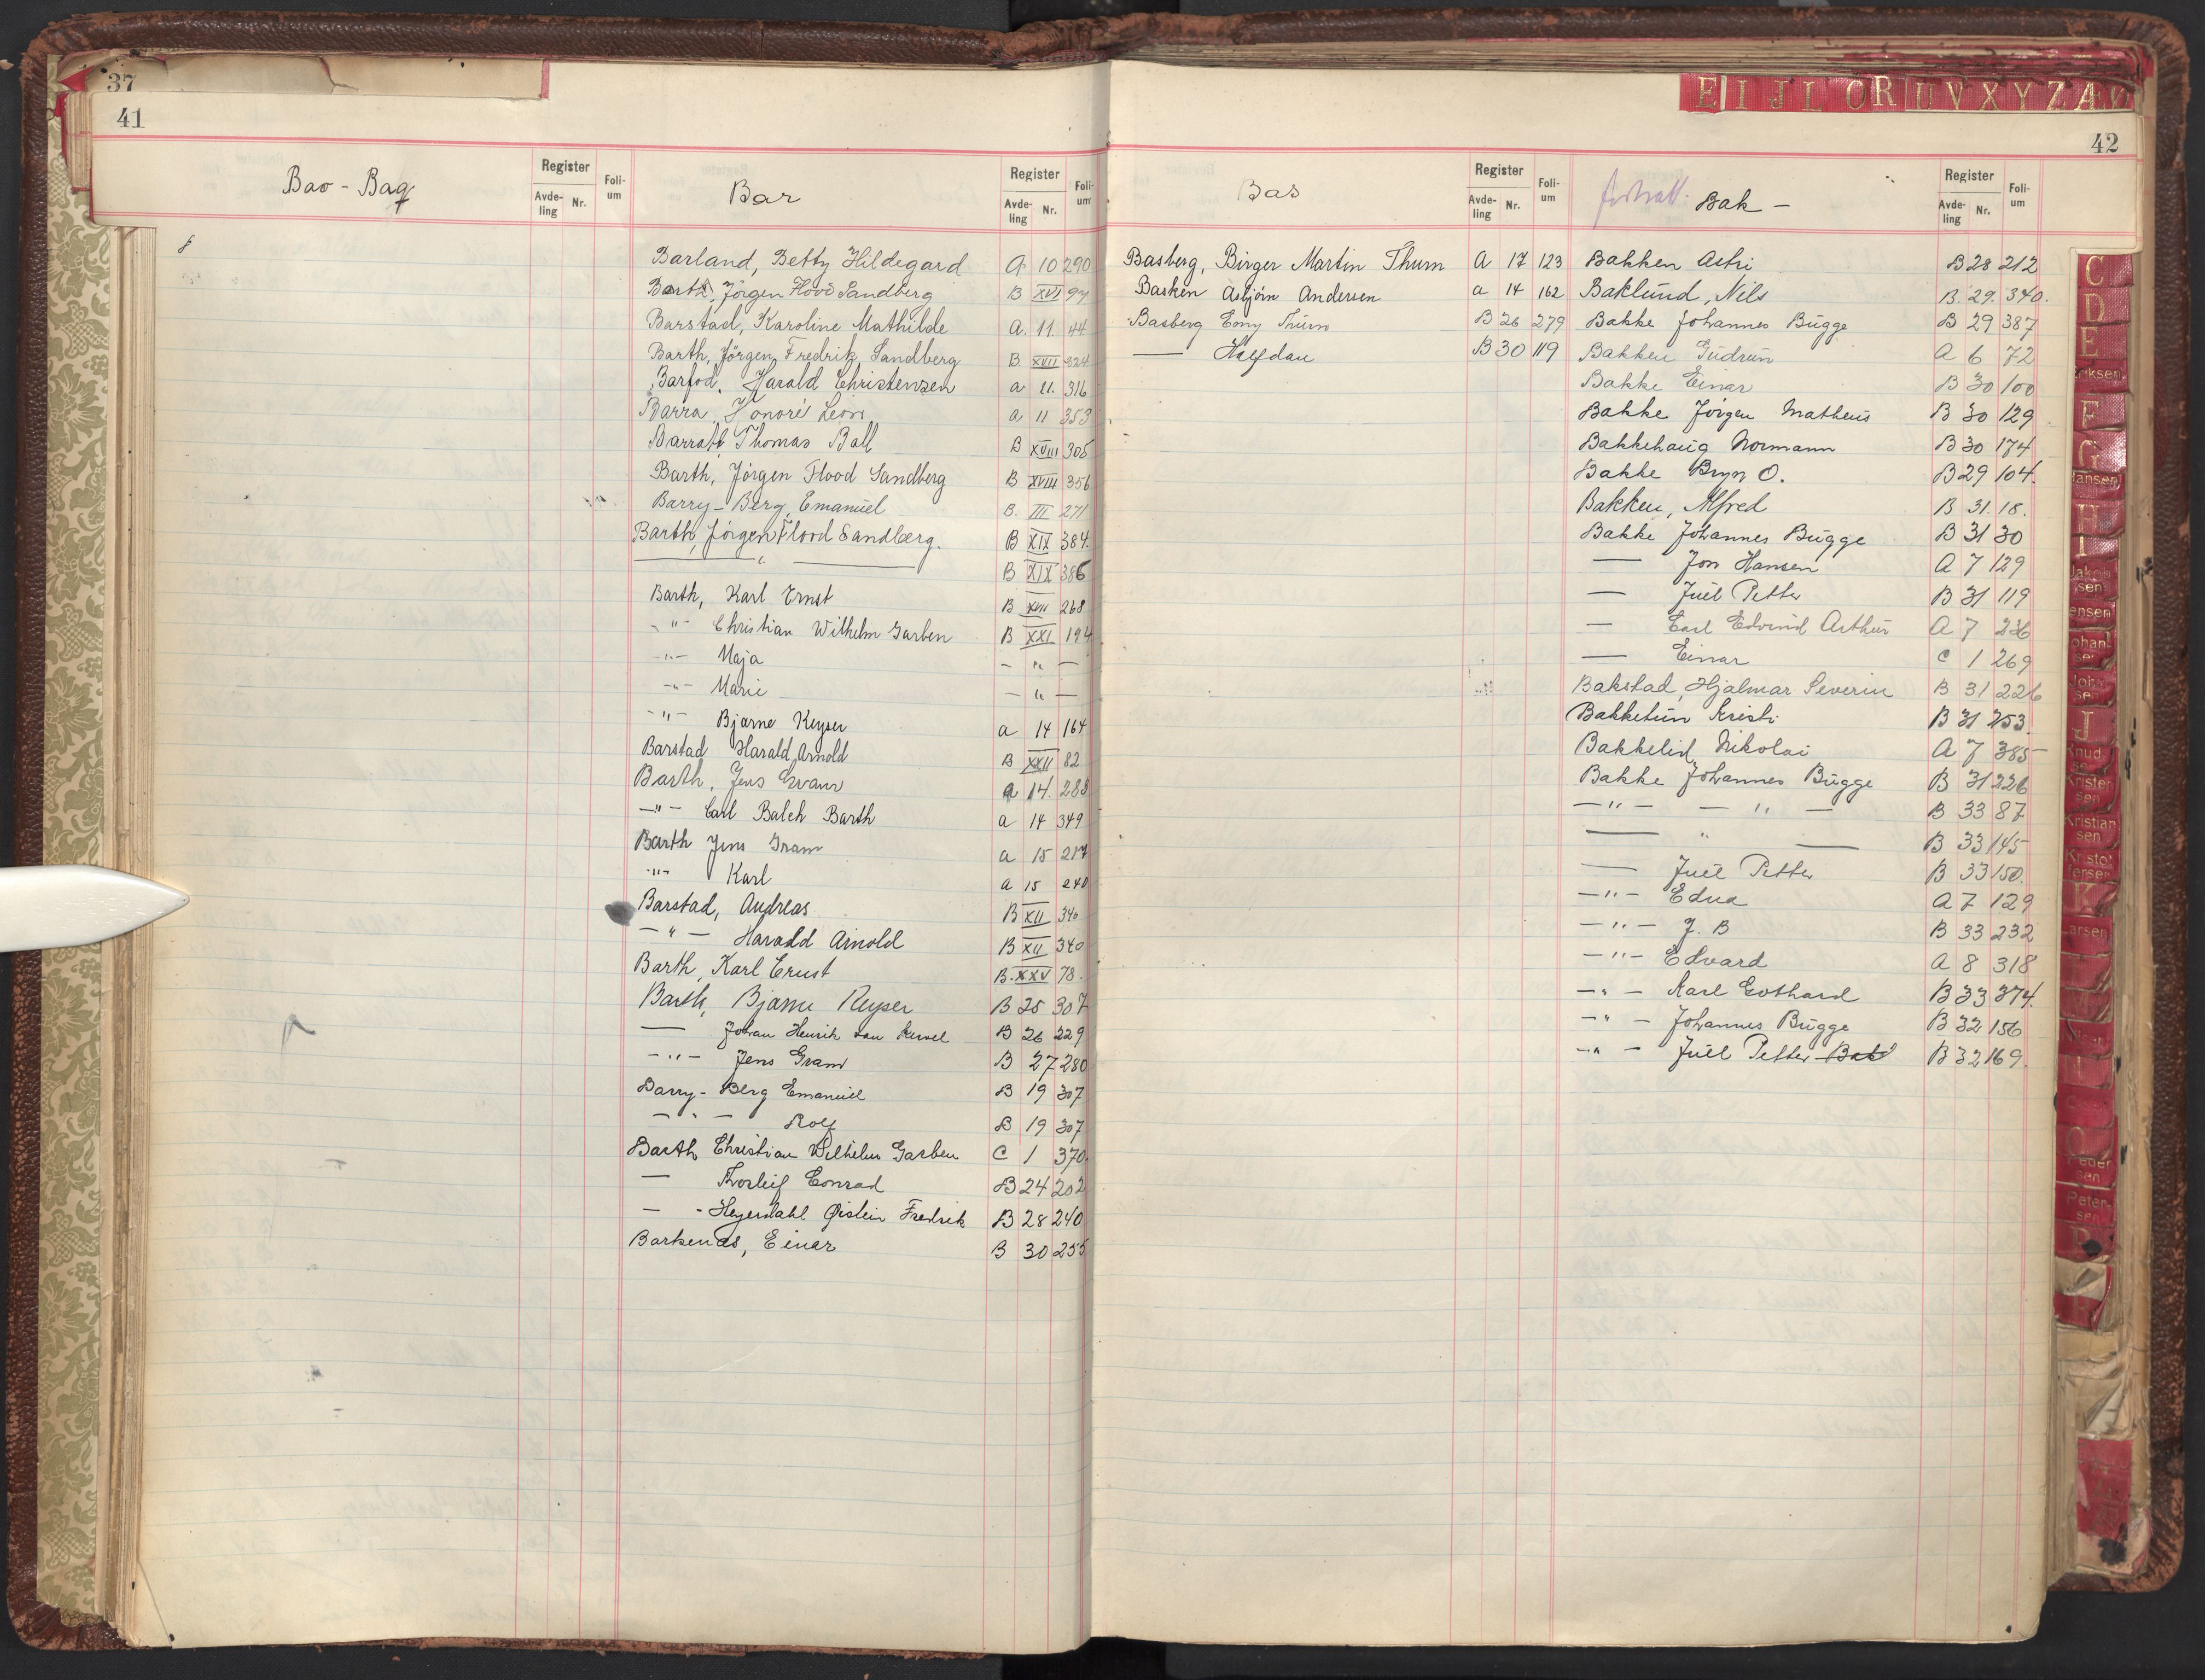 37
41
Bao - Baq
Register
Avde-ling Nr.
Foli-um
Bar
Register
Avde-ling Nr.
Foli-um
Barland, Betty Hildegard A 10 290
Barth, Jörgen Flood Sandberg B XVI 97
Barstad, Karoline Mathilde A. 11. 44
Barth, Jörgen Fredrik Sandberg B XVII 324
Barfod, Harald Christensen a 11. 316
Barra, Honoré Leon a 11 353
Barratt, Thomas Ball B XVIII 305
Barth, Jörgen Flood Sandberg B XVIII 356
Barry-Berg, Emanuel B. III 271
Barth, Jörgen Flood Sandberg. B XIX 384.
— " — B XIX 386
Barth, Karl Ernst B XVIII 268
- " - Christian Wilhelm Garben B XXI 194
- " - Maja — " —
- " - Marie — " —
- " - Bjarne Keyser a 14 164
Barstad Harald Arnold B XXII 82
Barth, Jens Gram a 14. 288
- " - Carl Balch Barth a 14 349
Barth Jens Gram a 15 217
- " - Karl a 15 240
Barstad, Andreas B XII 340
- " - Harald Arnold B XII 340
Barth, Karl Ernst B. XXV 78.
Barth, Bjarne Keyser B 25 307
— Johan Henrik B 26 229
- " - Jens Gram B 27 280
Barry-Berg Emanuel B 19 307
- " - Rolf B 19 307
Barth Christian Wilhelm Garben C 1 370
— Thorleif Conrad B 24 202
— - Heyerdahl Øistein Fredrik B 28 240
Barkenæs, Einar B 30 255
E I J L O R U V X Y Z Æ Ø
42
Bas
Register
Avde-ling Nr.
Foli-um
Basberg, Birger Martin Thurn A 17 123
Basken Asbjörn Andersen a 14 162
Basberg Emy Thurn B 26 279
— Halfdan B 30 119
fortsatt. Bak —
Register
Avde-ling Nr.
Foli-um
Bakken Astri B 28 212
Baklund, Nils B. 29. 340.
Bakke Johannes Bugge B 29 387
Bakken Gudrun A 6 72
Bakke Einar B 30 100
Bakke Jörgen Matheus B 30 129
Bakkehaug Normann B 30 174
Bakke Bryn O. B 29 104.
Bakken, Alfred B 31. 18.
Bakke Johannes Bugge B 31 30
— Jon Hansen A 7 129
— Juel Petter B 31 119
— Carl Edvind Arthur A 7 236
— Einar C 1 269
Bakstad, Hjalmar Severin B 31 226
Bakketun Kristi B 31 253.
Bakkelid Nikolai A 7 385
Bakke Johannes Bugge B 31 226
- " - — " — B 33 87
— " — B 33 145
— Juel Petter B 33 150.
- " - Edna A 7 129
- " - J. B B 33 232
- " - Edvard A 8 318
- " - Karl Gothard B 33 374.
- " - Johannes Bugge B 32 156
- " - Juel Petter Bak B 32 169.
C
D
E
Eriksen
F
G
Hansen
H
I
Jakob sen
Jensen
Johan sen
John sen
J
Knud sen
Krister sen
Kristian sen
Kristof fersen
K
Larsen
Peder sen
Peter sen